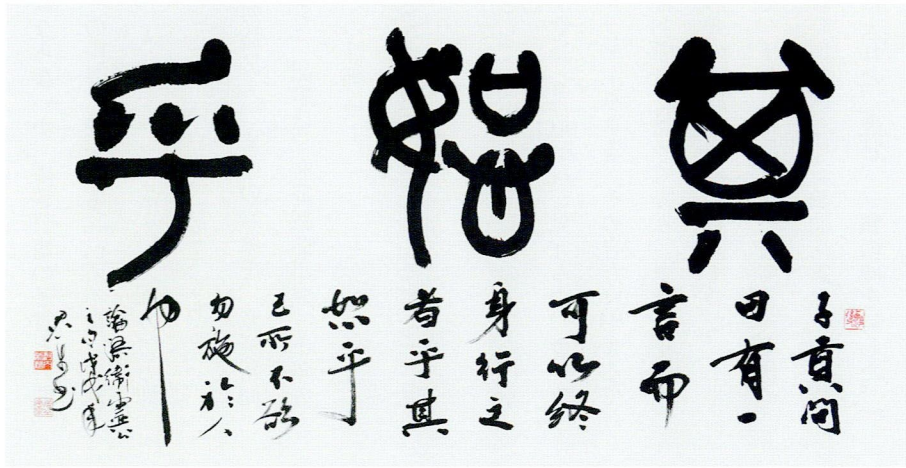 其恕乎
子貢問
曰有一
言而
可以終
身行之
者乎其
恕乎
己所不欲
勿施於人
論語衛靈公
之句戊戌年
書